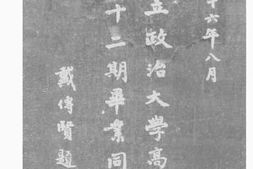 十六年八月
立政治大學高
十二期畢業同
戴傳賢題